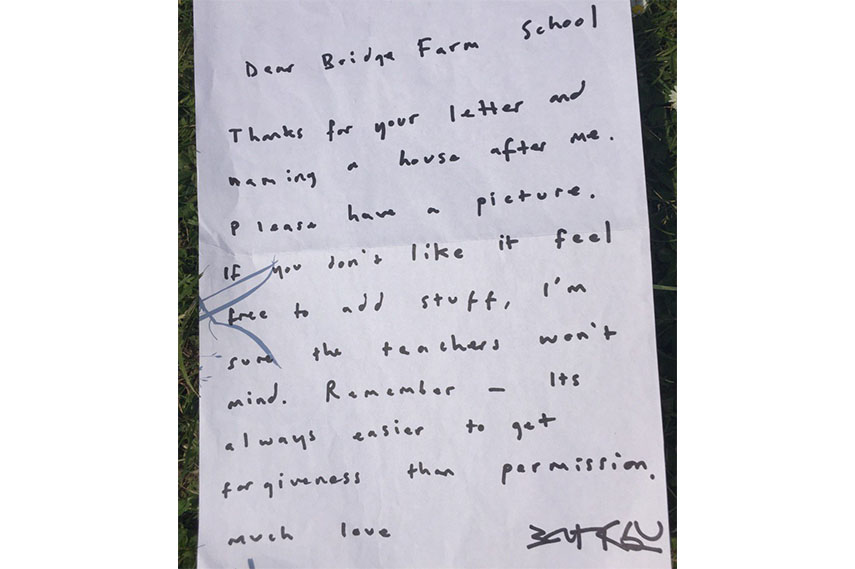 Dear Bridge Farm School
Thanks for your letter and
naming a house after me.
Please have a picture.
If you don't like it feel
free to add stuff, I'm
sure the teachers won't
mind. Remember - Its
always easier to get
forgiveness than permission.
much love